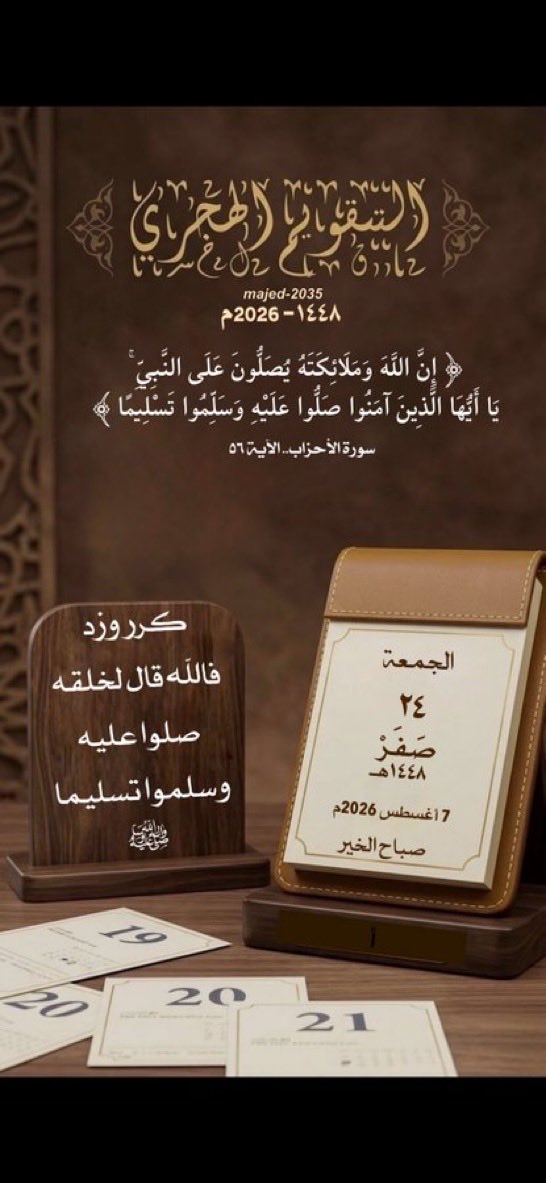 التقويم الهجري
majed-2035
١٤٤٨ - 2026م
﴿ إِنَّ اللَّهَ وَمَلَائِكَتَهُ يُصَلُّونَ عَلَى النَّبِيِّ ۚ
يَا أَيُّهَا الَّذِينَ آمَنُوا صَلُّوا عَلَيْهِ وَسَلِّمُوا تَسْلِيمًا ﴾
سورة الأحزاب.. الآية ٥٦
كرر وزد
فالله قال لخلقه
صلوا عليه
وسلموا تسليما
ﷺ
الجمعة
٢٤
صَفَرْ
١٤٤٨هـ
7 أغسطس 2026م
صباح الخير
أ
19
20
20
21